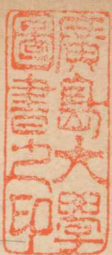 廣島大學
圖書之印